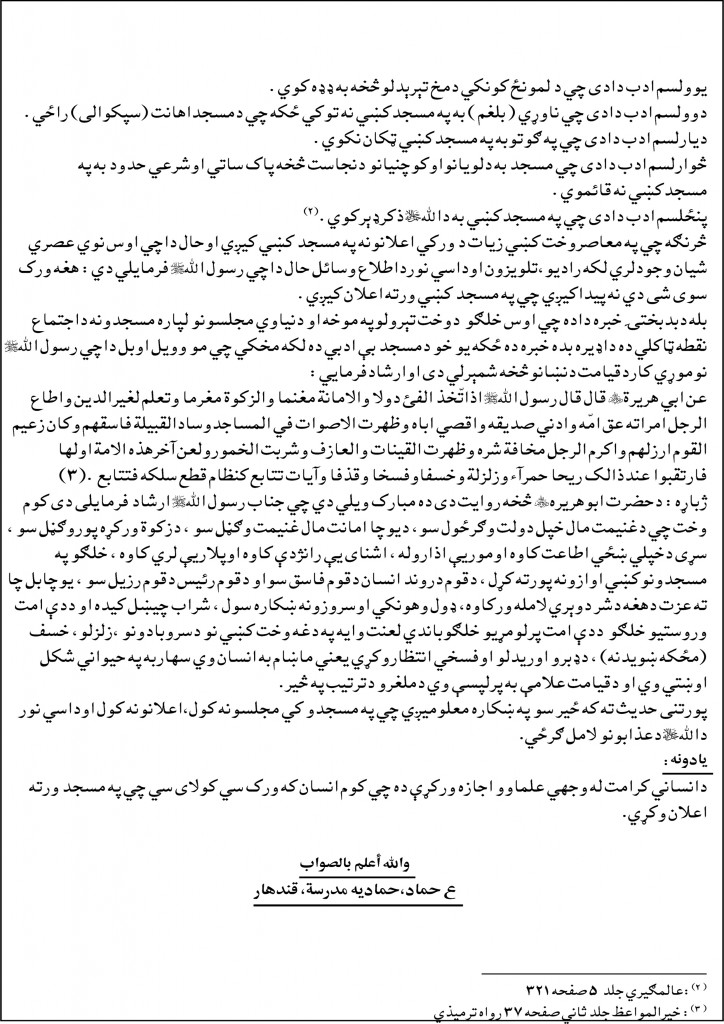 يوولسم ادب دادی چي د لمونځ کونکي د مخ تېرېدلو څخه به ډډه کوي .
دوولسم ادب دادی چي ناوړي ( بلغم ) به په مسجد کښي نه توکي ځکه چي د مسجد اهانت (سپکوالی) راځي .
ديارلسم ادب دادی چي په ګوتو به په مسجد کښي ټکان نکوي .
څوارلسم ادب دادی چي مسجد به د لويانو او کوچنيانو د نجاست څخه پاک ساتي او شرعي حدود به په
مسجد کښي نه قائموي .
پنځلسم ادب دادی چي په مسجد کښي به د الله ﷻ ذکر ډېر کوي .(۲)
څرنګه چي په معاصر وخت کښي زيات د ورکي اعلانونه په مسجد کښي کيږي او حال دا چي اوس نوي عصري
شيان وجود لري لکه راديو ، تلويزون او داسي نور د اطلاع وسائل حال دا چي رسول الله ﷺ فرمايلي دي : هغه ورک
سوی شی دي نه پيدا کيږي چي په مسجد کښي ورته اعلان کيږي .
بله د بدبختۍ خبره داده چي اوس خلګو د وخت تېرولو په موخه او د نياوي مجلسونو لپاره مسجدونه د اجتماع
نقطه ټاکلي ده دا ډيره بده خبره ده ځکه يو خو د مسجد بې ادبي ده لکه مخکي چي مو وويل او بل دا چي رسول الله ﷺ
نوموړي کار د قيامت د نښانو څخه شمېرلي دی او ارشاد فرمايي :
عن ابي هريرة ؓ قال قال رسول الله ﷺ اذا تّخذ الفئ دولا والامانة مغنما والزکوة مغرما وتعلم لغيرالدين واطاع
الرجل امراته عق امّه وادني صديقه واقصي اباه وظهرت الاصوات في المساجد وساد القبيلة فاسقهم وکان زعيم
القوم ارزلهم واکرم الرجل مخافة شره وظهرت القينات والعازف وشربت الخمور ولعن آخر هذه الامة اولها
فارتقبوا عند ذالک ريحا حمرآء وزلزلة وخسفا وفسخا وقذفا وآيات تتتابع کنظام قطع سلکه فتتتابع .(۳)
ژباړه : د حضرت ابو هريره ؓ څخه روايت دی ده مبارک ويلي دي چي جناب رسول الله ﷺ ارشاد فرمايلی دی کوم
وخت چي د غنيمت مال خپل دولت وګرځول سو ، د يو چا امانت مال غنيمت وګڼل سو ، د زکوة ورکړه پور وګڼل سو ،
سړی د خپلي ښځي اطاعت کاوه او مور يې اذاروله ، اشنای يې رانژدې کاوه او پلار يې لري کاوه ، خلګو په
مسجدونو کښي اوازونه پورته کړل ، د قوم دروند انسان د قوم فاسق سو او د قوم رئيس د قوم رزيل سو ، يو چا بل چا
ته عزت د هغه د شر د وېري لامله ورکاوه ، ډول وهونکي او سروزونه ښکاره سول ، شراب چيښل کيده او د دې امت
وروستيو خلګو د دې امت پر لومړيو خلګو باندي لعنت وايه په دغه وخت کښي نو د سرو بادونو ، زلزلو ، خسف
(مځکه ښويدنه) ، د ډبرو اوريدلو او فسخي انتظار وکړي يعني ماښام به انسان وي سهار به په حيواني شکل
اوښتي وي او د قيامت علامې به پرلپسې وي د ملغرو د ترتيب په څير .
پورتنی حديث ته که ځير سو په ښکاره معلوميږي چي په مسجدو کي مجلسونه کول، اعلانونه کول او داسي نور
د الله ﷻ د عذابونو لامل ګرځي.
يادونه :
د انساني کرامت له وجهي علماوو اجازه ورکړې ده چي کوم انسان که ورک سي کولای سي چي په مسجد ورته
اعلان وکړي.
والله أعلم بالصواب
ع حماد، حماديه مدرسة، قندهار
(۲) : عالمګيري جلد ۵ صفحه ۳۲۱
(۳) : خيرالمواعظ جلد ثاني صفحه ۳۷ رواه ترميذي